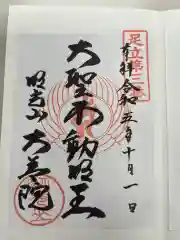 足立第三番
奉拝 令和五年十月一日
大聖不動明王
大善院